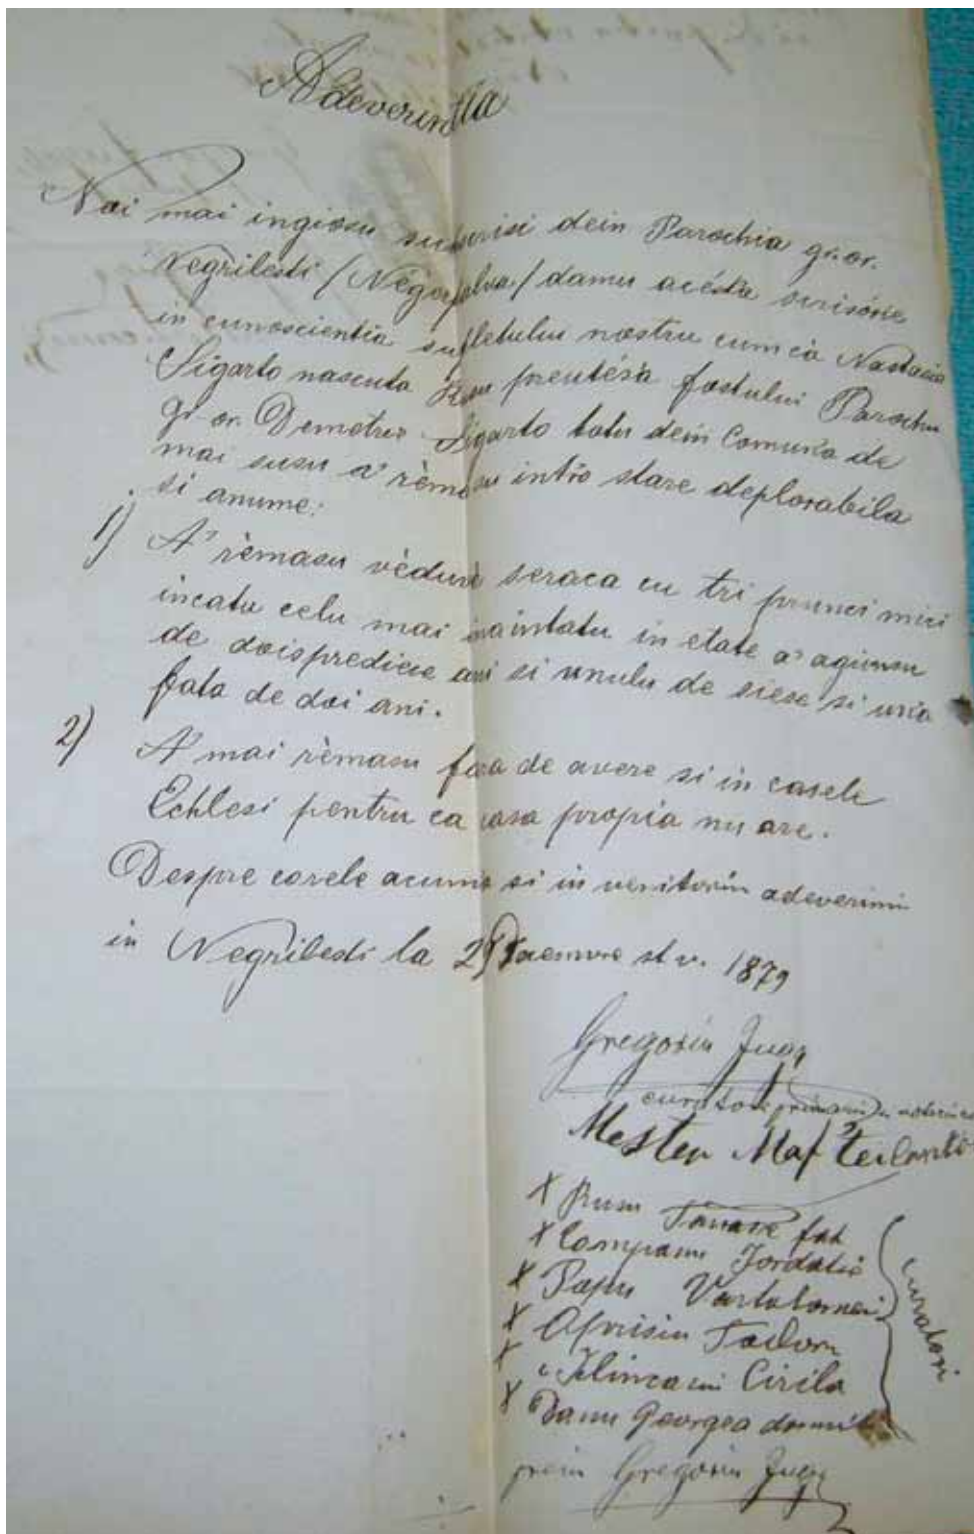 Adeverintia
Noi mai ingiosu subscrisi dein Parochia gr. or.
Negrilesti / Négerfalva / damu acésta scrisóre
in cunoscientia sufletului nostru cumcà Nastasia
Sigarto nascuta Rusu preutésa fostului Parochu
gr. or. Demetriu Sigarto totu dein Comuna de
mai susu a' rèmasu intr'o stare deplorabila
si anume:
1) A' rèmasu vèduvé seraca cu tri prunci mici
incatu celu mai inaintatu in etate a' agiunsu
de doispredicie ani si unulu de siese si una
fata de doi ani.
2) A' mai rèmasu fara de avere si in casele
Echlesi pentru ca casa propia nu are.
Despre carele acuma si in venitoriu adeverimu
in Negrilesti la 29 Decemvre st. v. 1879
Gregoriu
curatore primariu
Mester
X Rusu Tanase fat
X Campanu Iordatie
X Popu Vartolomei
X Todoru
X Cirila
X Danu Georgea
curatori
prein Gregoriu